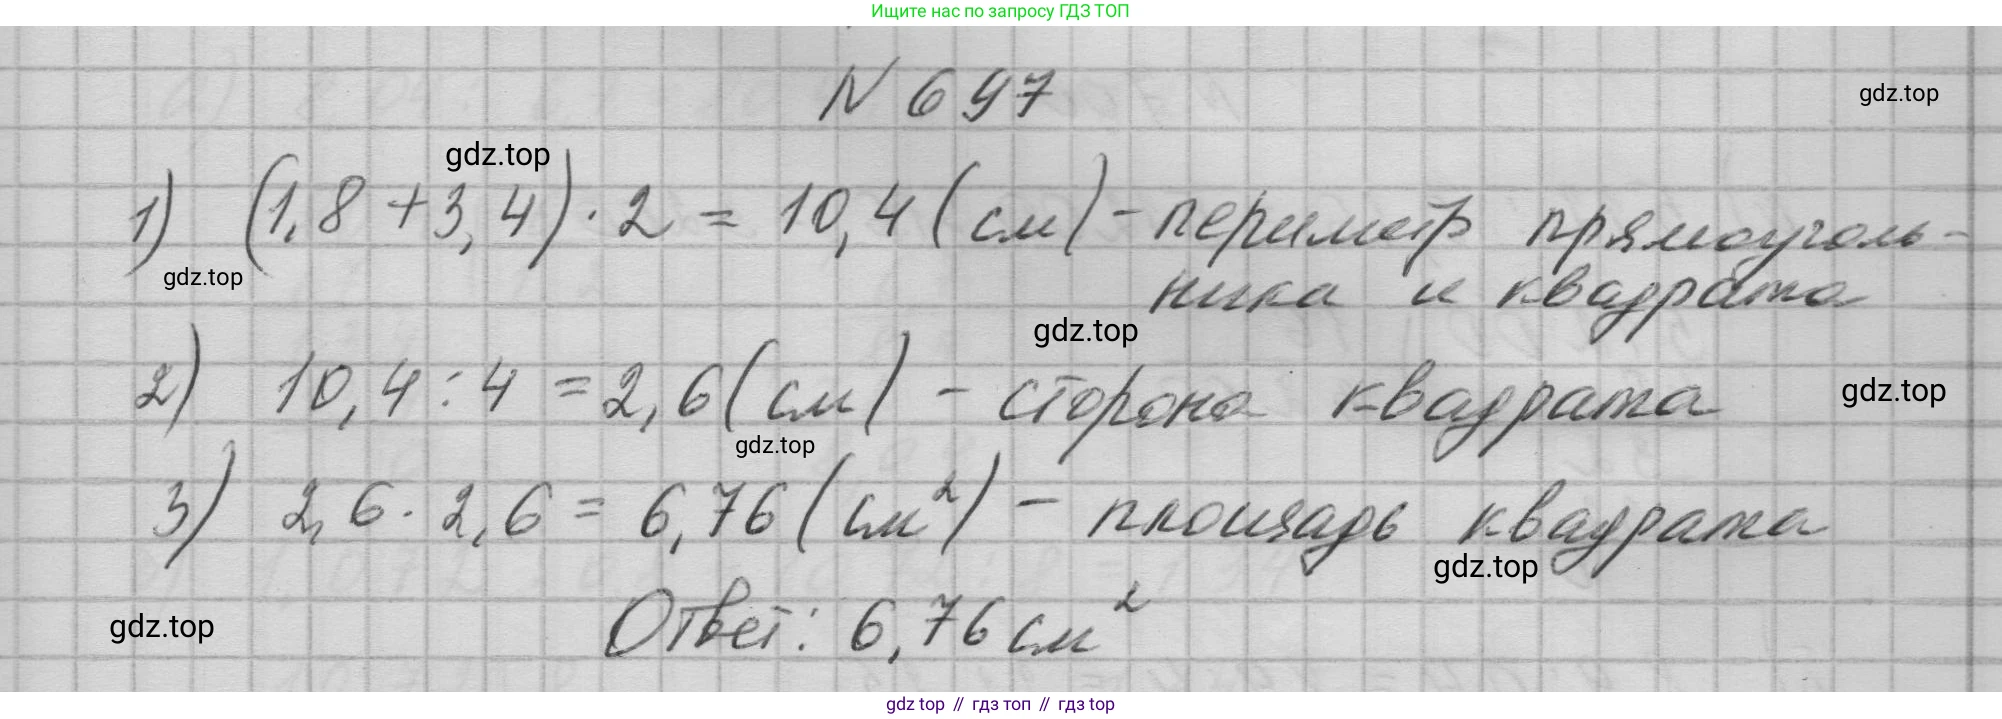 Ищите нас по запросу ГДЗ ТОП
N 697
gdz.top
gdz.top
1) (1,8 + 3,4) · 2 = 10,4 (см) - периметр прямоуголь-
gdz.top
ника и квадрата
gdz.top
2) 10,4 : 4 = 2,6 (см) - сторона квадрата
gdz.top
gdz.top
3) 2,6 · 2,6 = 6,76 (см²) - площадь квадрата
gdz.top
Ответ: 6,76 см²
gdz.top
gdz top // гдз топ // gdz top